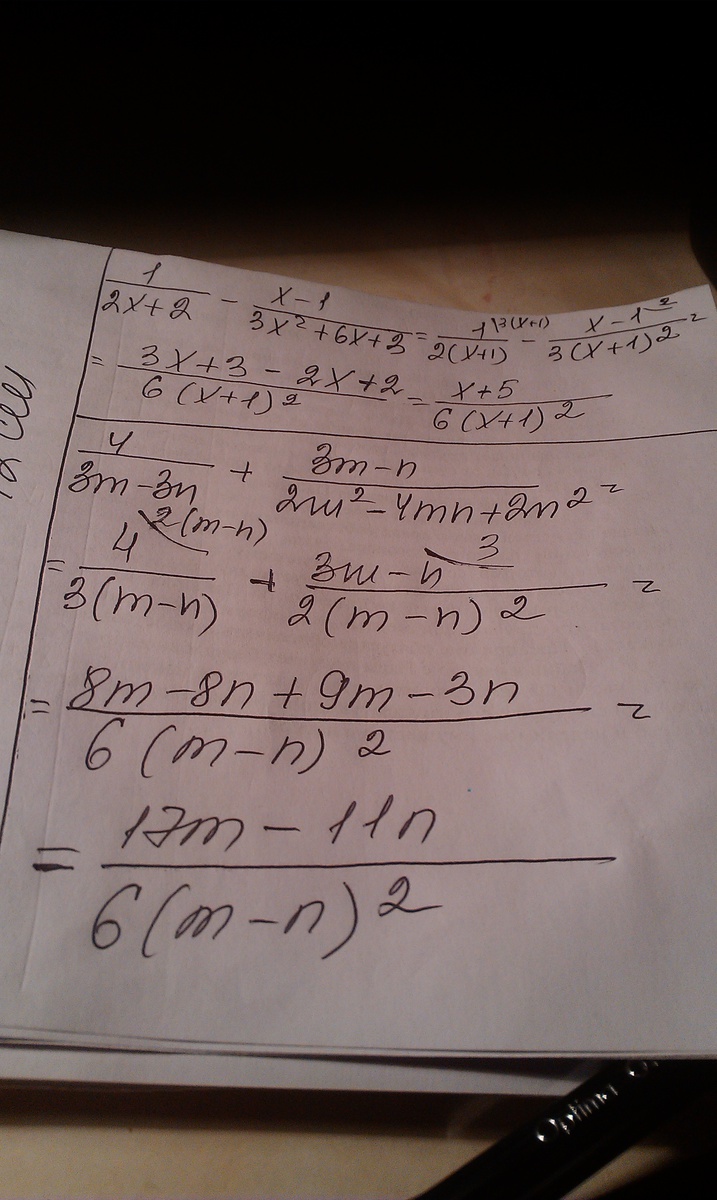 1/(2x+2) - (x-1)/(3x²+6x+3) = 1\3(x+1)/(2(x+1)) - (x-1\2)/(3(x+1)²) =
= (3x+3-2x+2)/(6(x+1)²) = (x+5)/(6(x+1)²)
4/(3m-3n) + (3m-n)/(2m²-4mn+2n²) =
= 4\2(m-n)/(3(m-n)) + (3m-n\3)/(2(m-n)²) =
= (8m-8n+9m-3n)/(6(m-n)²) =
= (17m-11n)/(6(m-n)²)